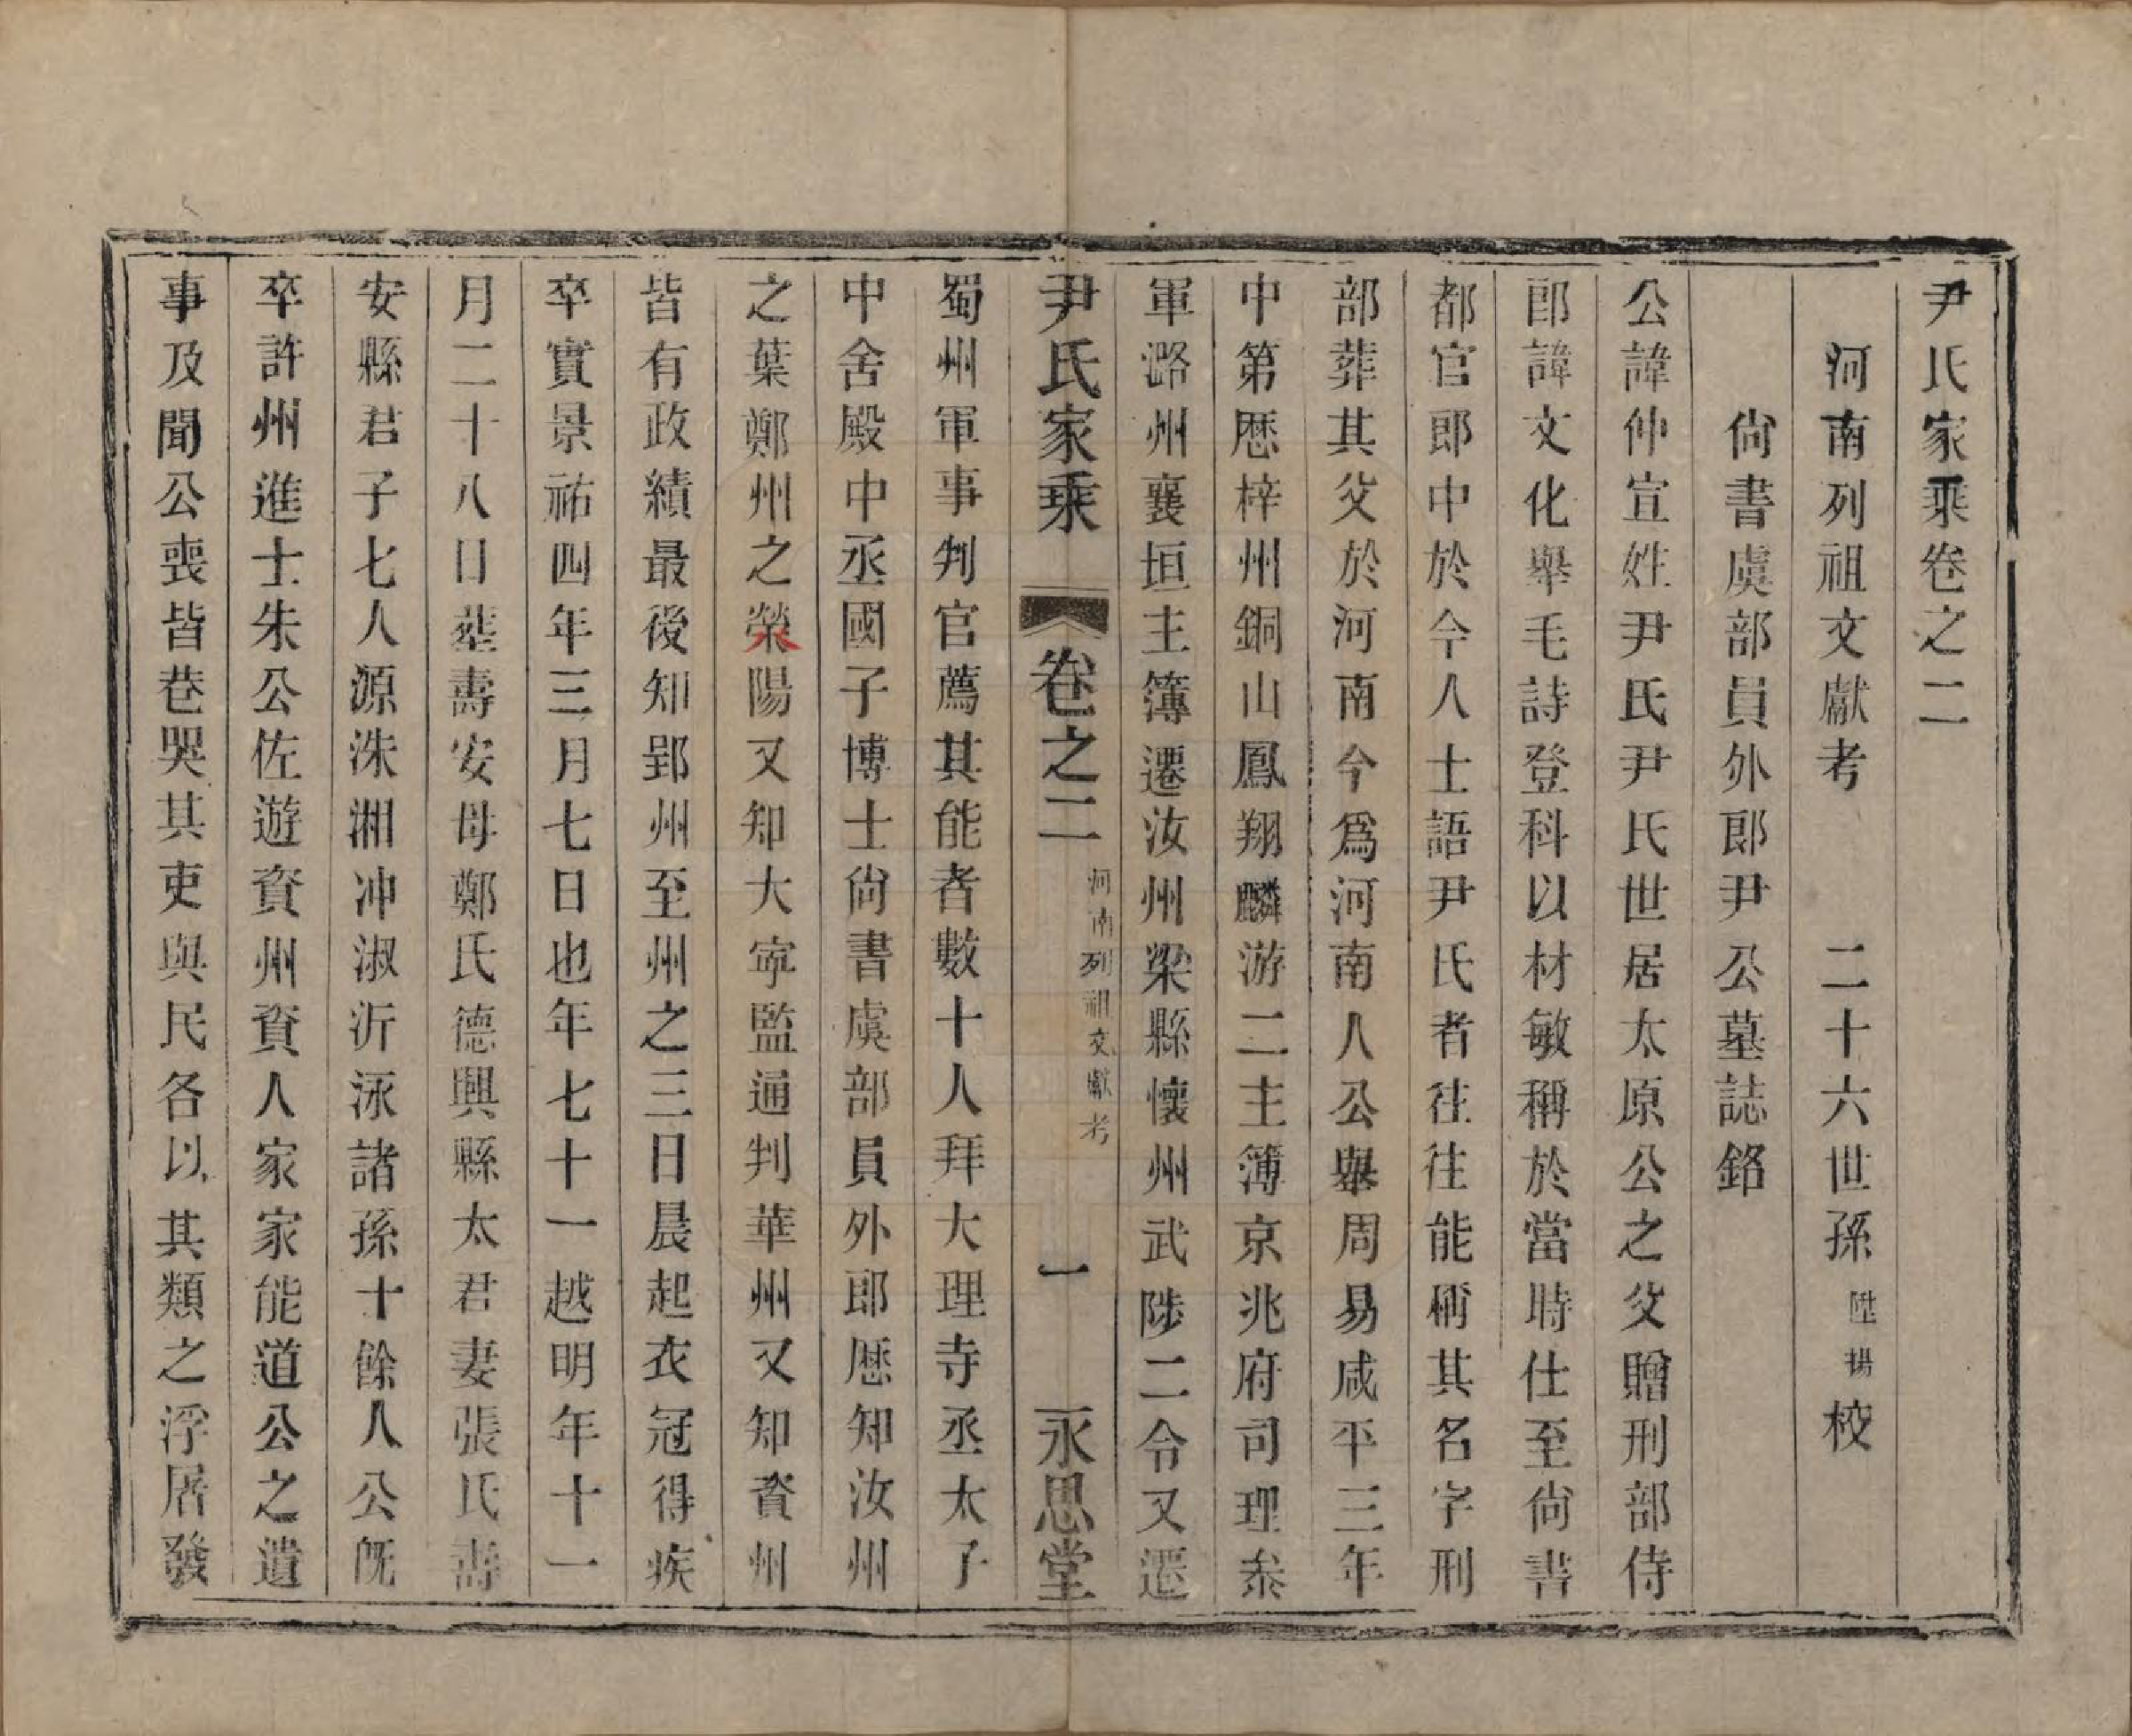 尹氏家乘卷之二
河南列祖文獻考　二十六世孫陞揚校
尙書虞部員外郎尹公墓誌銘
公諱仲宣姓尹氏尹氏世居太原公之父贈刑部侍
郎諱文化舉毛詩登科以材敏稱於當時仕至尙書
都官郎中於今人士語尹氏者往往能稱其名字刑
部葬其父於河南今爲河南人公舉周易咸平三年
中第歷梓州銅山鳳翔麟游二主簿京兆府司理叅
軍潞州襄垣主簿遷汝州梁縣懷州武陟二令又遷
尹氏家乘　卷之二　河南列祖文獻考　一　永思堂
蜀州軍事判官薦其能者數十人拜大理寺丞太子
中舍殿中丞國子博士尙書虞部員外郎歷知汝州
之葉鄭州之滎陽又知大寧監通判華州又知資州
皆有政績最後知郢州至州之三日晨起衣冠得疾
卒實景祐四年三月七日也年七十一越明年十一
月二十八日塟壽安母鄭氏德興縣太君妻張氏壽
安縣君子七人源洙湘冲淑沂泳諸孫十餘人公旣
卒許州進士朱公佐遊資州資人家家能道公之遺
事及聞公喪皆巷哭其吏與民各以其類之浮居發